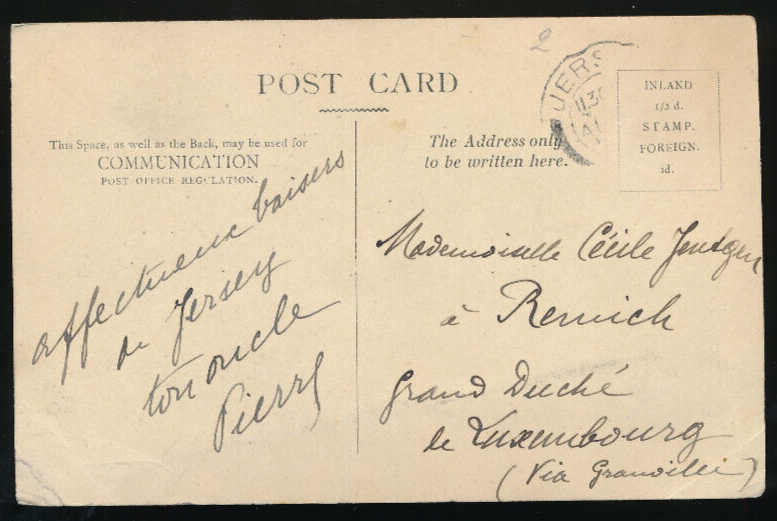 2
POST CARD
This Space, as well as the Back, may be used for
COMMUNICATION
POST OFFICE REGULATION.
affectueux baisers
de Jersey
ton oncle
Pierre
The Address only
to be written here.
JERS
INLAND
1/2 d.
STAMP.
FOREIGN.
1d.
Mademoiselle Cécile Jentgen
à Remich
Grand Duché
de Luxembourg
(Via Granville)